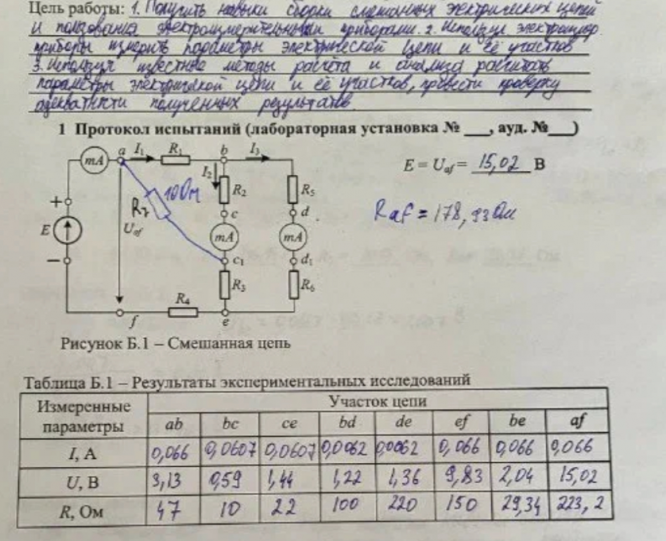 Цель работы: 1. Получить навыки сборки смешанных электрических цепей
и пользования электроизмерительными приборами. 2. Используя электроизмер.
приборы измерить параметры электрической цепи и её участков
3. Используя известные методы расчёта и анализа рассчитать
параметры электрической цепи и её участков, провести проверку
адекватности полученных результатов.
1 Протокол испытаний (лабораторная установка № ___, ауд. №___)
a I₁ R₁ b I₃
mA I₂ R₂ R₅
E = U_af = 15,02 В
R₇ 10 Ом c d
R af = 178,93 Ом
+ E − U_af mA mA
c₁ d₁
R₃ R₆
R₄
f e
Рисунок Б.1 – Смешанная цепь
Таблица Б.1 – Результаты экспериментальных исследований
Измеренные параметры Участок цепи
ab bc ce bd de ef be af
I, А 0,066 0,0607 0,0607 0,0062 0,0062 0,066 0,066 0,066
U, В 3,13 0,59 1,44 1,22 1,36 9,83 2,04 15,02
R, Ом 47 10 22 100 220 150 29,34 223,2